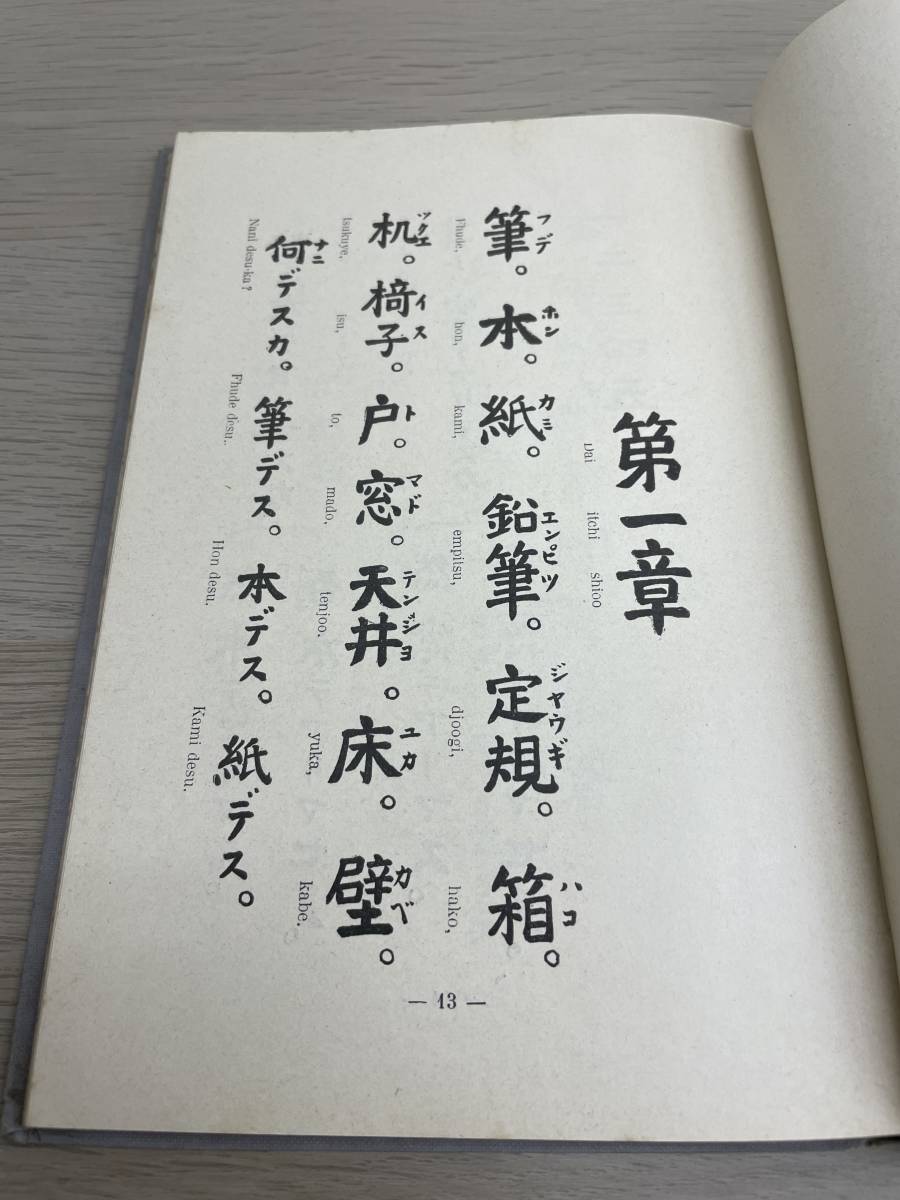 第一章
Dai itchi shioo
フデ ホン カミ エンピツ ジヤウギ ハコ
筆。本。紙。鉛筆。定規。箱。
Fhude, hon, kami, empitsu, djoogi, hako,
ツクエ イス ト マド テンジヨ ユカ カベ
机。椅子。戸。窓。天井。床。壁。
tsukuye, isu, to, mado, tenjoo. yuka, kabe.
ナニ
何デスカ。筆デス。本デス。紙デス。
Nani desu-ka? Fhude desu. Hon desu. Kami desu.
— 13 —